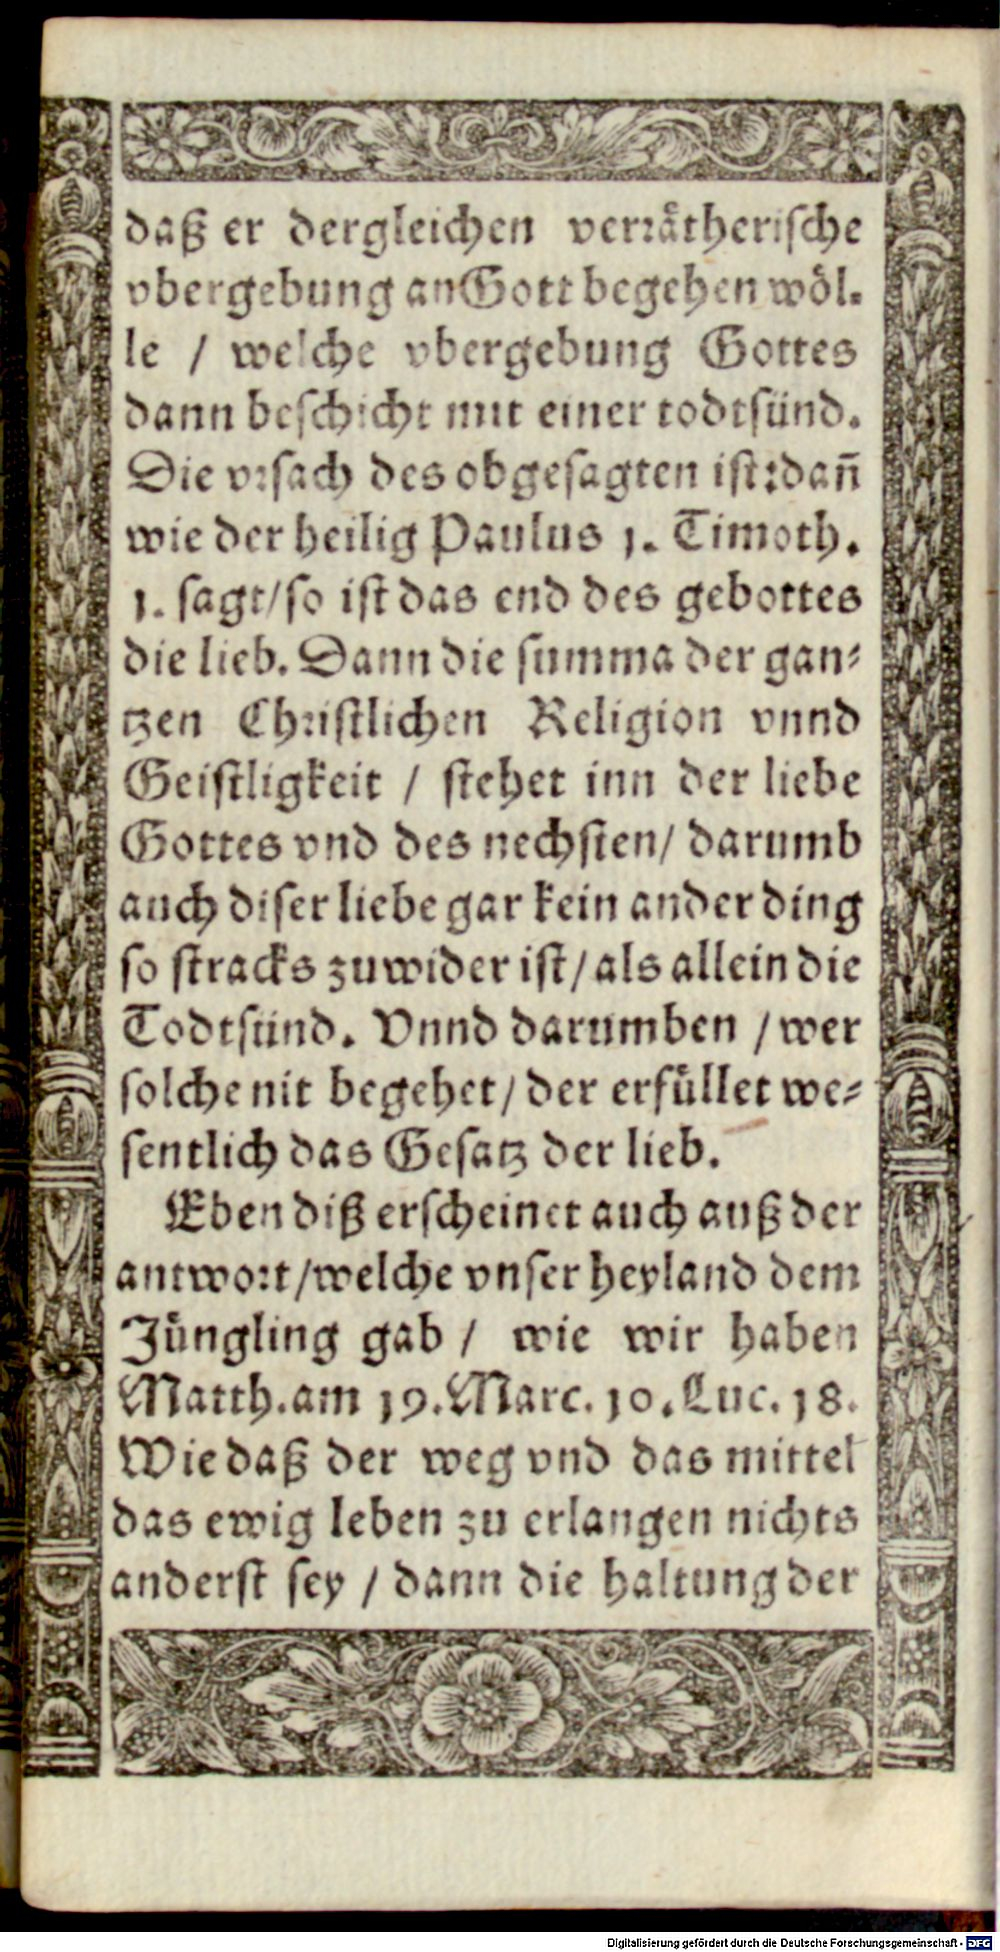 daß er dergleichen verrätherische
vbergebung an Gott begehen wöl-
le / welche vbergebung Gottes
dann beschicht mit einer todtsünd.
Die vrsach des obgesagten ist: dañ
wie der heilig Paulus 1. Timoth.
1. sagt/ so ist das end des gebottes
die lieb. Dann die summa der gan-
tzen Christlichen Religion vnnd
Geistligkeit / stehet inn der liebe
Gottes vnd des nechsten/ darumb
auch diser liebe gar kein ander ding
so stracks zuwider ist/ als allein die
Todtsünd. Vnnd darumben / wer
solche nit begehet/ der erfüllet we-
sentlich das Gesatz der lieb.
Eben diß erscheinet auch auß der
antwort/ welche vnser heyland dem
Jüngling gab / wie wir haben
Matth. am 19. Marc. 10. Luc. 18.
Wie daß der weg vnd das mittel
das ewig leben zu erlangen nichts
anderst sey / dann die haltung der
Digitalisierung gefördert durch die Deutsche Forschungsgemeinschaft - DFG